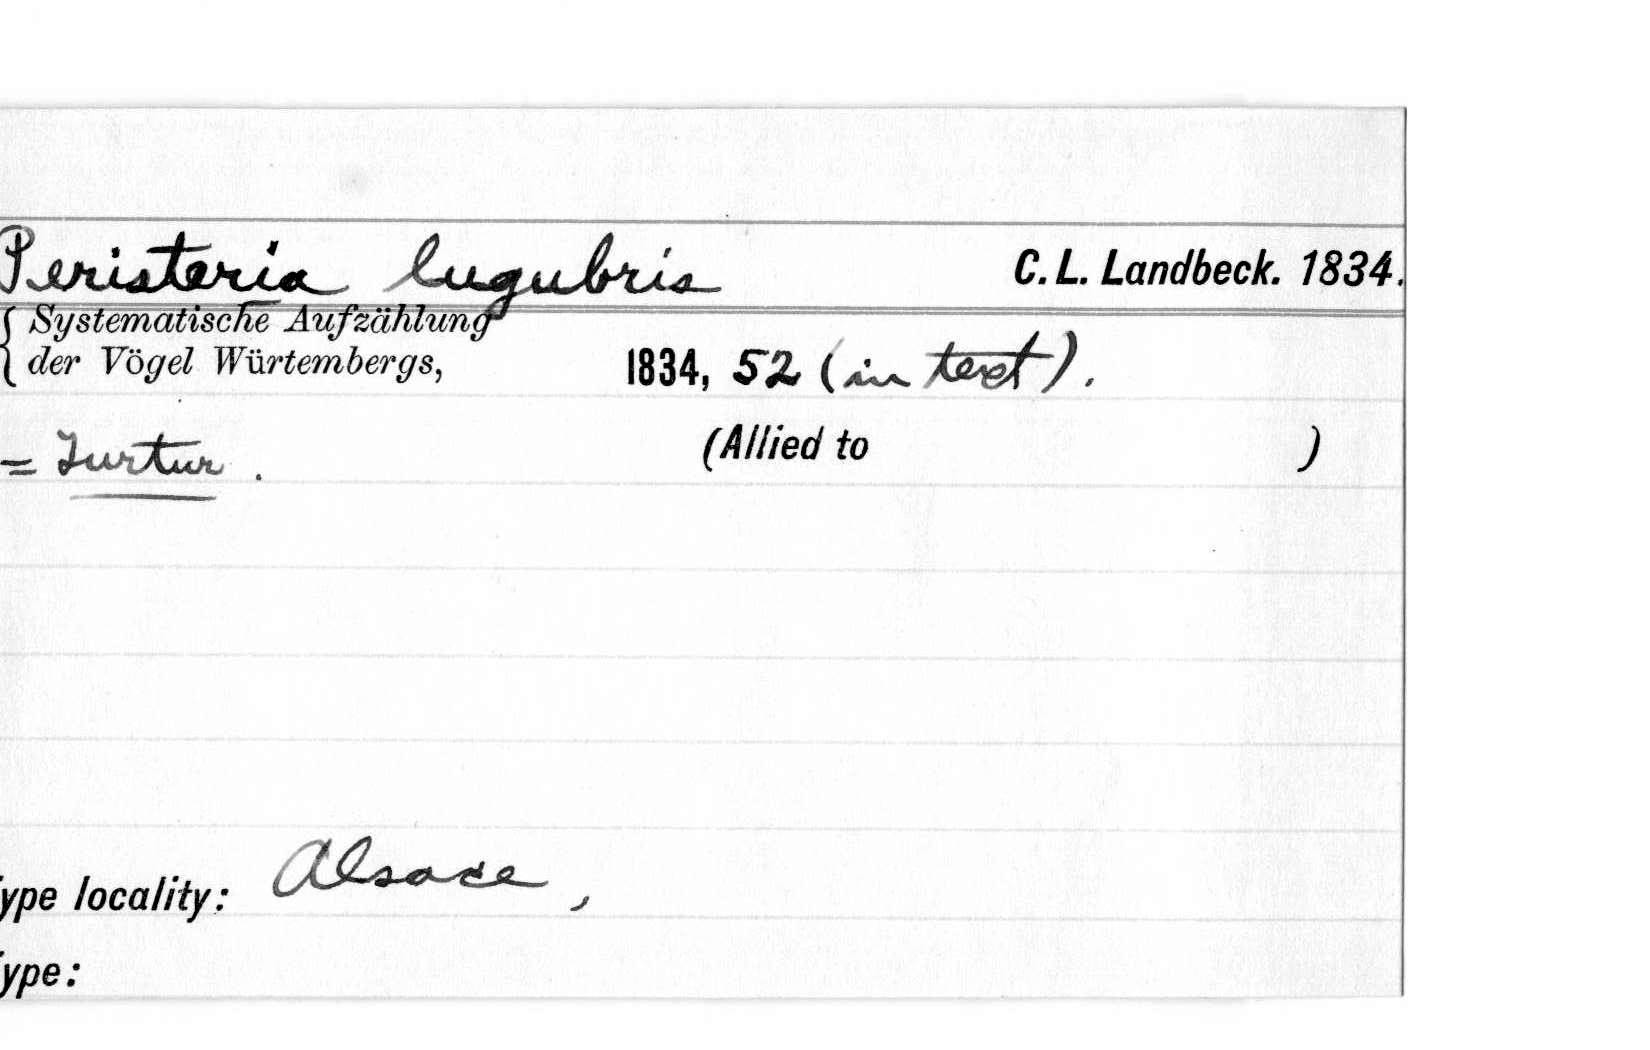 Peristeria lugubris C. L. Landbeck. 1834.
{ Systematische Aufzählung
der Vögel Würtembergs, 1834, 52 (in text).
= Turtur. (Allied to )
ype locality: Alsace,
ype: